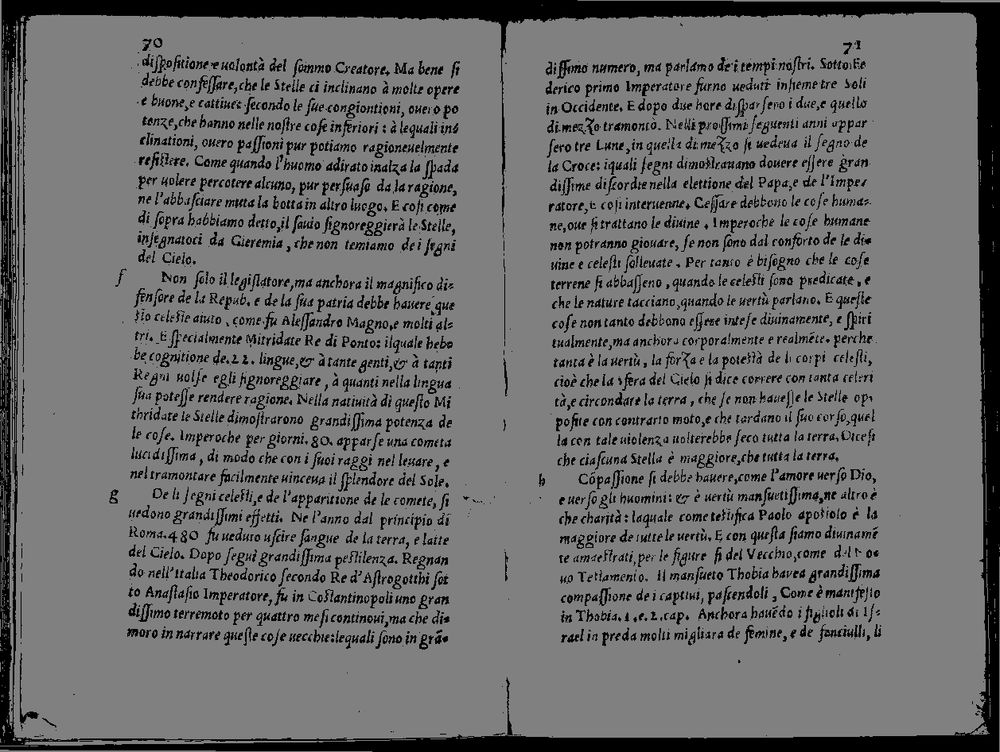 70
dispositione e uolontà del sommo Creatore. Ma bene si
debbe confessare, che le Stelle ci inclinano à molte opere
e buone, e cattiue: secondo le sue congiontioni, ouero po
tenze, che hanno nelle nostre cose inferiori: à lequali inã
clinationi, ouero passioni pur potiamo ragioneuelmente
resistere. Come quando l'huomo adirato inalza la spada
per uolere percotere alcuno, pur persuaso da la ragione,
ne l'abbasciare muta la botta in altro luogo. E cosi come
di sopra habbiamo detto, il sauio signoreggierà le Stelle,
insegnatoci da Gieremia, che non temiamo de i segni
del Cielo.
f Non solo il legislatore, ma anchora il magnifico di-
fensore de la Repub. e de la sua patria debbe hauere que
sto celeste aiuto, come fu Alessandro Magno, e molti al-
tri. E specialmente Mitridate Re di Ponto: ilquale hebe
be cognitione de. 22. lingue, & à tante genti, & à tanti
Regni uolse egli signoreggiare, à quanti nella lingua
sua potesse rendere ragione. Nella natiuità di questo Mi
thridate le Stelle dimostrarono grandissima potenza de
le cose. Imperoche per giorni. 80. apparse una cometa
lucidissima, di modo che con i suoi raggi nel leuare, e
nel tramontare facilmente uinceua il splendore del Sole.
g De li segni celesti, e de l'apparitione de le comete, si
uedono grandissimi effetti. Ne l'anno dal principio di
Roma. 480 fu ueduto uscire sangue de la terra, e latte
del Cielo. Dopo seguì grandissima pestilenza. Regnan
do nell'Italia Theodorico secondo Re d'Astrogotthi sot
to Anastasio Imperatore, fu in Costantinopoli uno gran
dissimo terremoto per quattro mesi continoui, ma che di-
moro in narrare queste cose uecchie: lequali sono in grã-
71
dissimo numero, ma parlamo de i tempi nostri. Sotto Fe
derico primo Imperatore furno ueduti insieme tre Soli
in Occidente. E dopo due hore disparsero i due, e quello
di mezzo tramontò. Nelli prossimi seguenti anni appar
sero tre Lune, in quella di mezzo si uedeua il segno de
la Croce: iquali segni dimostrauano douere essere gran
dissime discordie nella elettione del Papa, e de l'Impe-
ratore, E cosi interuenne. Cessare debbono le cose huma-
ne, oue si trattano le diuine. Imperoche le cose humane
non potranno giouare, se non sono dal conforto de le di-
uine e celesti solleuate. Per tanto è bisogno che le cose
terrene si abbasseno, quando le celesti sono predicate, e
che le nature tacciano, quando le uertù parlano. E queste
cose non tanto debbono essere intese diuinamente, e spiri
tualmente, ma anchora corporalmente e realmẽte. perche
tanta è la uertù, la forza e la potestà de li corpi celesti,
cioè che la sfera del Cielo si dice correre con tanta celeri
tà, e circondare la terra, che se non hauesse le Stelle op-
posite con contrario moto, e che tardano il suo corso, quel
la con tale uiolenza uolterebbe seco tutta la terra. Dicesi
che ciascuna Stella è maggiore, che tutta la terra.
h Cõpassione si debbe hauere, come l'amore uerso Dio,
e uerso gli huomini: & è uertù mansuetissima, ne altro è
che charità: laquale come testifica Paolo apostolo è la
maggiore de tutte le uertù. E con questa siamo diuinamẽ
te amaestrati, per le figure si del Vecchio, come del no
uo Testamento. Il mansueto Thobia hauea grandissima
compassione de i captiui, pascendoli, Come è manifesto
in Thobia. 1. e. 2. cap. Anchora hauẽdo i figlioli di Is-
rael in preda molti migliara de femine, e de fanciulli, li